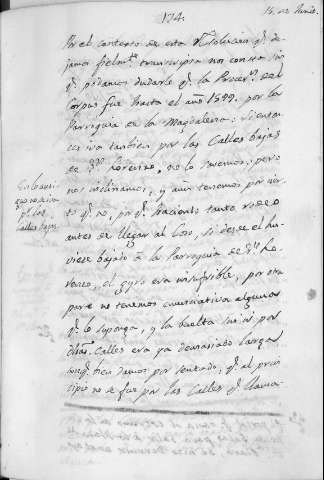 174.
15. de Junio.
Por el contexto de esta Resolucion q.e de-
jamos fielm.te transcripta nos consta sin
q.e podamos dudarlo q.e la Proces.n del
Corpus fue hasta el año 1599. por la
Parroquia de la Magdalena:
es iva tambien por las Calles bajas
de S.n Lorenzo, no lo savemos; pero
nos inclinamos, y aun tenemos por cier-
to q.e no, por q.e haciendo tanto rodeo
antes de llegar al Coso, si desde el hu-
viese bajado a la Parroquia de S.n Lo-
renzo, el gyro era insufrible, por otra
parte no tenemos enumerativa alguna
q.e lo suponga, y la buelta sin ir por
dhas. Calles era ya demasiado larga;
bien damos por sentado, q.e al prin-
cipio no se fue por las Calles q.e llama-
En lo anti-
guo no iva
p.r las
Calles bajas